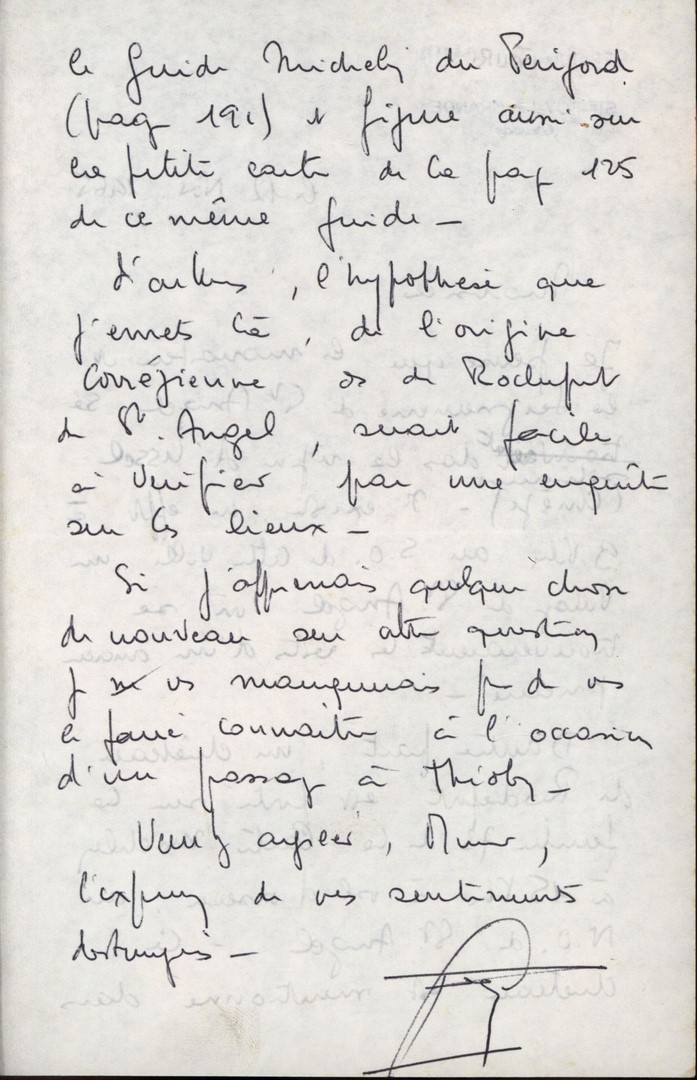 le Guide Michelin du Périgord
(page 191) et figure aussi sur
la petite carte de la page 125
de ce même guide –
D'ailleurs, l'hypothèse que
j'émets là, de l'origine
Corrézienne de Rochefort
de St. Angel, serait facile
à vérifier par une enquête
sur les lieux –
Si j'apprenais quelque chose
de nouveau sur cette question
je vs manquerais pas de vs
le faire connaître à l'occasion
d'un passage à Thiob
Veuillez agréer, Monsieur,
l'expression de mes sentiments
distingués –